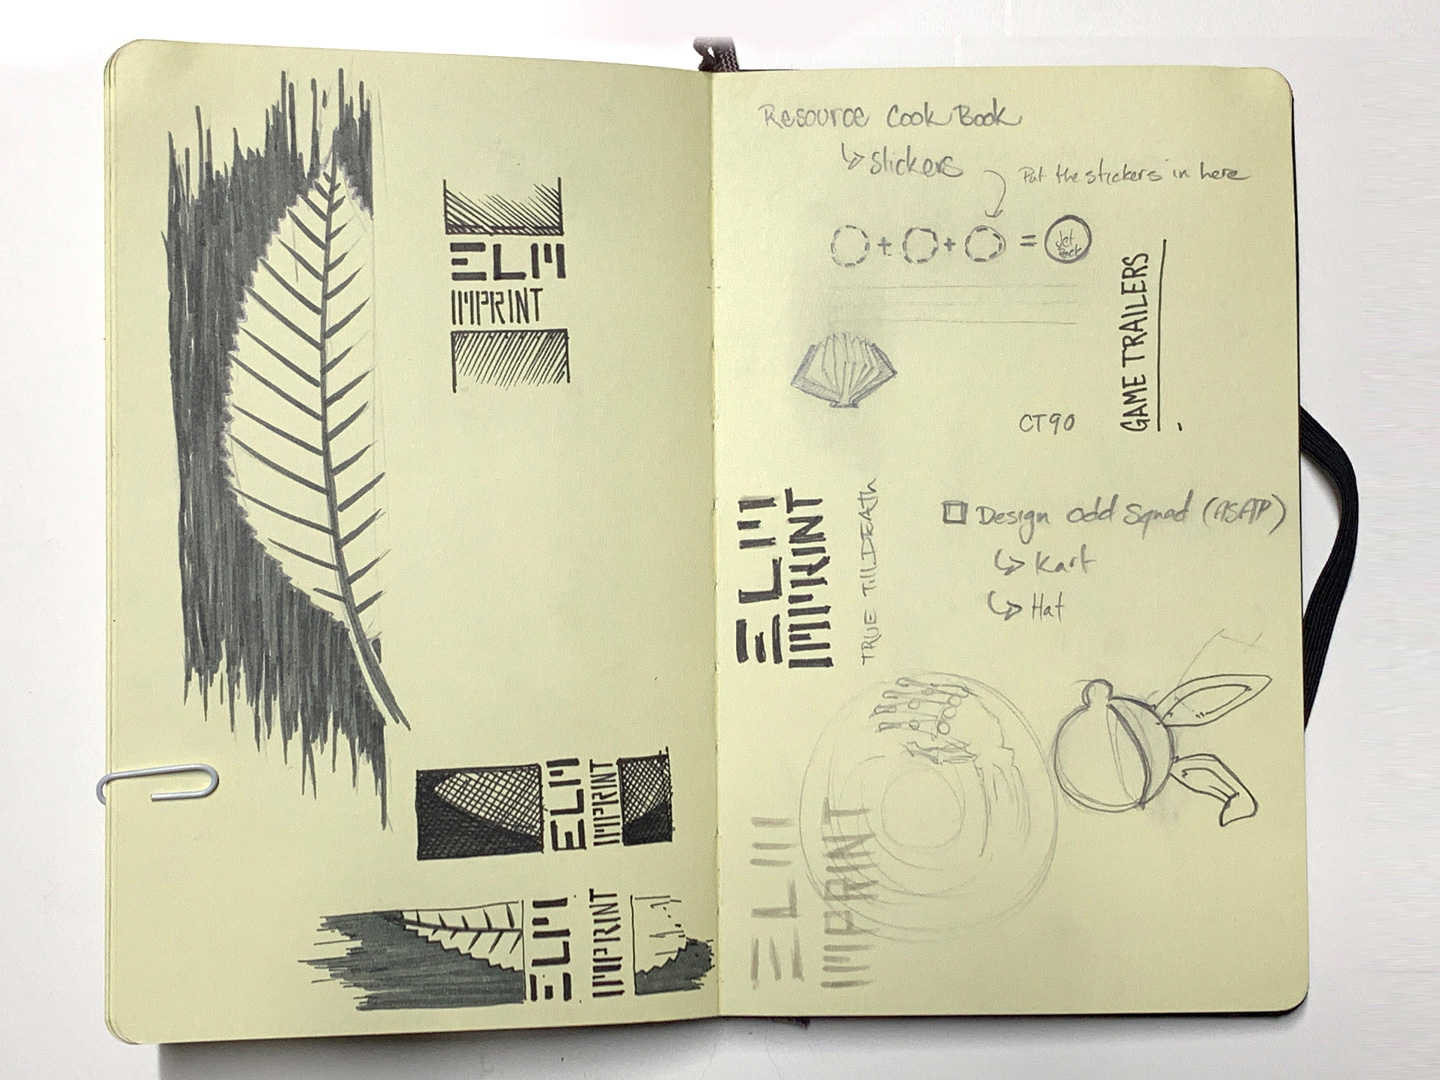 ELM
IMPRINT
ELM
IMPRINT
ELM
IMPRINT
Resource Cook Book
stickers
Put the stickers in here
+ + =
Jet
Pack
GAME TRAILERS
CT90
ELM
IMPRINT
TRUE TILL DEATH
Design Odd Squad (ASAP)
Kart
Hat
ELM
IMPRINT